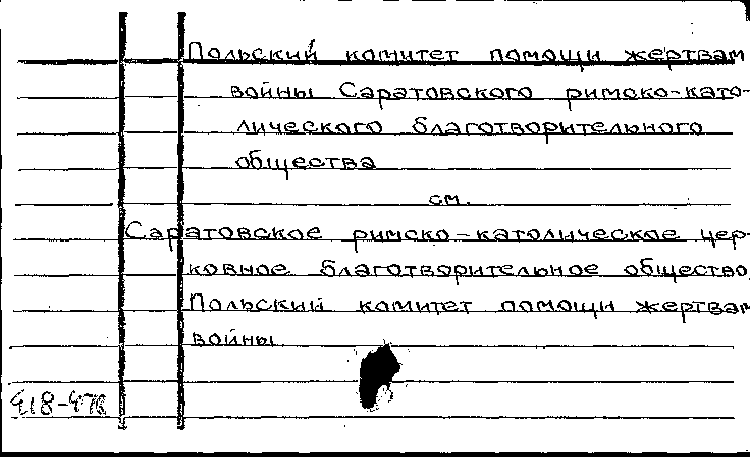 Польский комитет помощи жертвам
войны Саратовского римско-като-
лического благотворительного
общества
см.
Саратовское римско-католическое цер-
ковное благотворительное общество.
Польский комитет помощи жертвам
войны